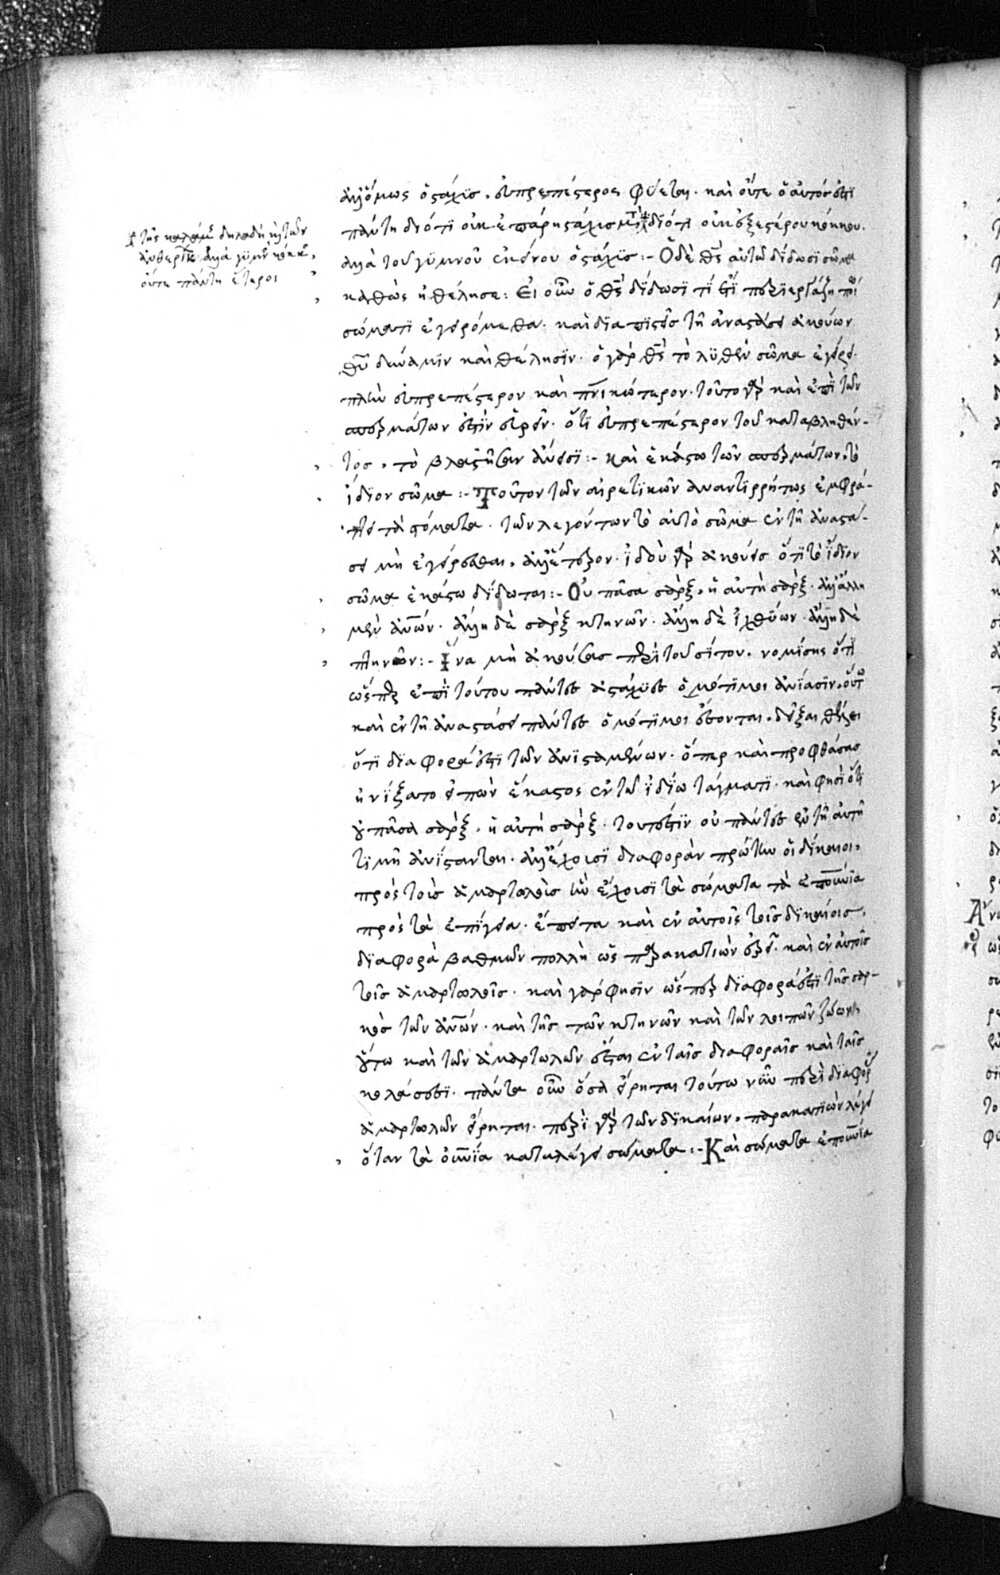 ἀλλ' ὅμως ὁ στάχυς, εὐπρεπέστερος φύεται. καὶ οὔτε ὁ αὐτός ἐστι
πάντη διότι οὐκ ἐσπάρη στάχυς μετὰ διότι οὐκ ἐξ ἑτέρου κόκκου.
ἀλλὰ τοῦ γυμνοῦ ἐκείνου ὁ στάχυς :- Ὁ δὲ θς αὐτῶ δίδωσι σῶμα
καθὼς ἠθέλησε : Εἰ οὖν ὁ θς δίδωσι τί ἔτι περιεργάζη ποίω
σώματι ἐγειρόμεθα. καὶ διαπιστεῖς τῆ ἀναστάσει ἀκούων
θυ δύναμιν καὶ θέλησιν. ὁ γὰρ θς τὸ λυθὲν σῶμα ἐγείρει.
πλὴν εὐπρεπέστερον καὶ πνικώτερον. τοῦτο γὰρ καὶ ἐπὶ τῶν
σπερμάτων ἐστὶν εὑρεῖν. ὅτι εὐπρεπέστερον τοῦ καταβληθέν-
τος, τὸ βλαστῆσαν ἄνεισι :- Καὶ ἑκάστω τῶν σπερμάτων, τὸ
ἴδιον σῶμα :- Τοῦτον τῶν αἱρετικῶν ἀναντιρρήτως ἐμφρά-
τει τὰ στόματα. τῶν λεγόντων τὸ αὐτὸ σῶμα ἐν τῆ ἀναστά-
σει μὴ ἐγείρεσθαι, ἀλλ' ἕτερον. ἰδοὺ γὰρ ἀκούεις ὅτι τὸ ἴδιον
σῶμα ἑκάστω δίδοται :- Οὐ πᾶσα σὰρξ, ἡ αὐτὴ σὰρξ. ἀλλ' ἄλλη
μὲν ἀνων. ἄλλη δὲ σὰρξ κτηνῶν. ἄλλη δὲ ἰχθύων. ἄλλη δὲ
πτηνῶν :- Ἵνα μὴ ἀκούσας περὶ τοῦ σίτου, νομίσης ὅτι
ὥσπερ ἐπὶ τούτου πάντες ἀστάχυες ὁμότιμοι ἀνίασιν, οὕτω
καὶ ἐν τῆ ἀναστάσει πάντες ὁμότιμοι ἔσονται,
ὅτι διαφορά ἐστι τῶν ἀνισταμένων. ὅπερ καὶ προφθάσας
ἠνίξατο εἰπὼν ἕκαστος ἐν τῶ ἰδίω τάγματι. καὶ φησὶ ὅτι
οὐ πᾶσα σὰρξ, ἡ αὐτὴ σὰρξ. τουτέστιν οὐ πάντες ἐν τῆ αὐτῆ
τιμῆ ἀνίστανται. ἀλλ' ἔχουσι διαφορὰν πρῶτον οἱ δίκαιοι,
πρὸς τοὺς ἁμαρτωλοὺς ἣν ἔχουσι τὰ σώματα τὰ ἐπουνια
πρὸς τὰ ἐπίγεια. ἔπειτα καὶ ἐν αὐτοῖς τοῖς δικαίοις,
διαφορὰ βαθμῶν πολλὴ ὡς παρακατιὼν ἐρεῖ. καὶ ἐν αὐτοῖς
τοῖς ἁμαρτωλοῖς. καὶ γάρ φησιν ὥσπερ διαφορά ἐστι τῆς σαρ-
κὸς τῶν ἀνων. καὶ τῆς τῶν κτηνῶν καὶ τῶν λοιπῶν ζώων
οὕτω καὶ τῶν ἁμαρτωλῶν ἔσται ἐν ταῖς διαφοραῖς καὶ ταῖς
κολάσεσι. πάντα οὖν ὅσα εἴρηται τούτω νῦν περὶ διαφορᾶς
ἁμαρτωλῶν εἴρηται. περὶ γὰρ τῶν δικαίων, παρακατιὼν λέγει
ὅταν τὰ οὐνια καταλέγει σώματα :- Καὶ σώματα ἐπουνια
τῆς καλάμης δηλαδὴ καὶ τῶν
ἀνθερίκων ἀλλὰ γυμνὸς κόκκος,
οὔτε πάντη ἕτερος